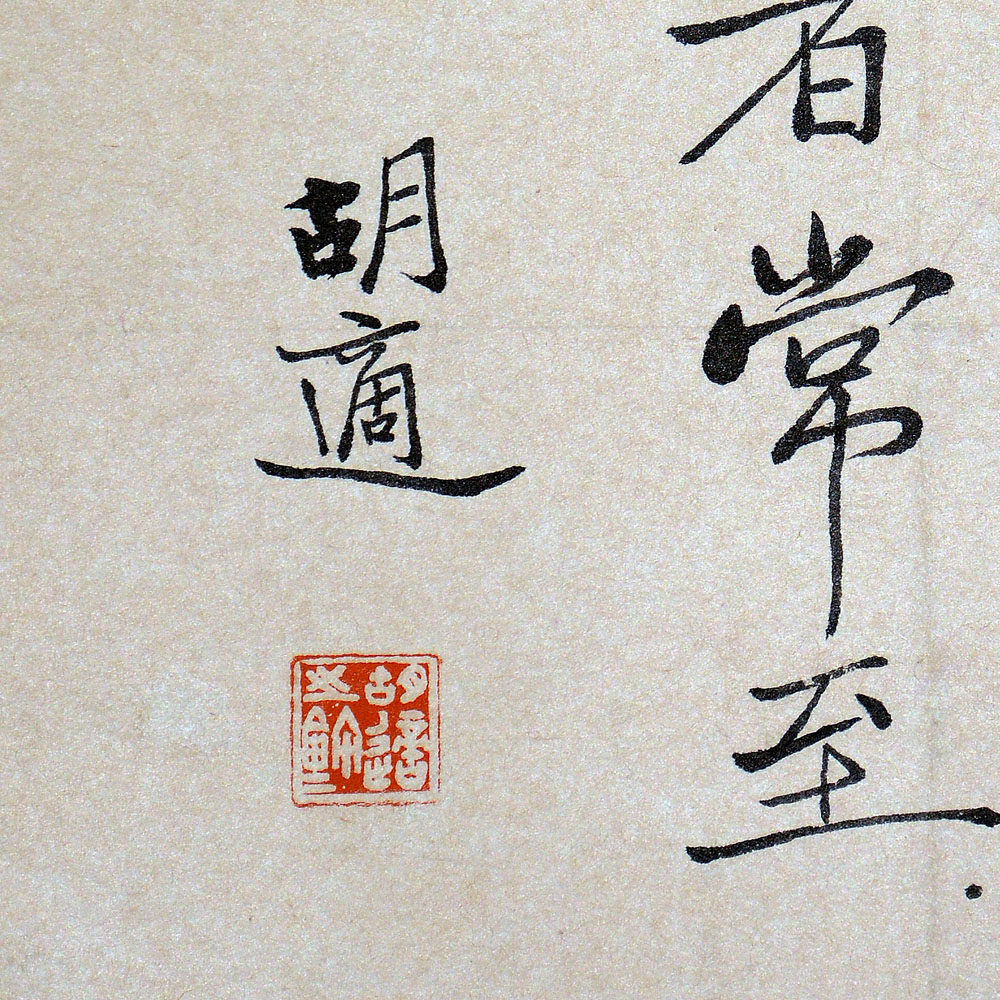 者常至.
胡適
胡適之